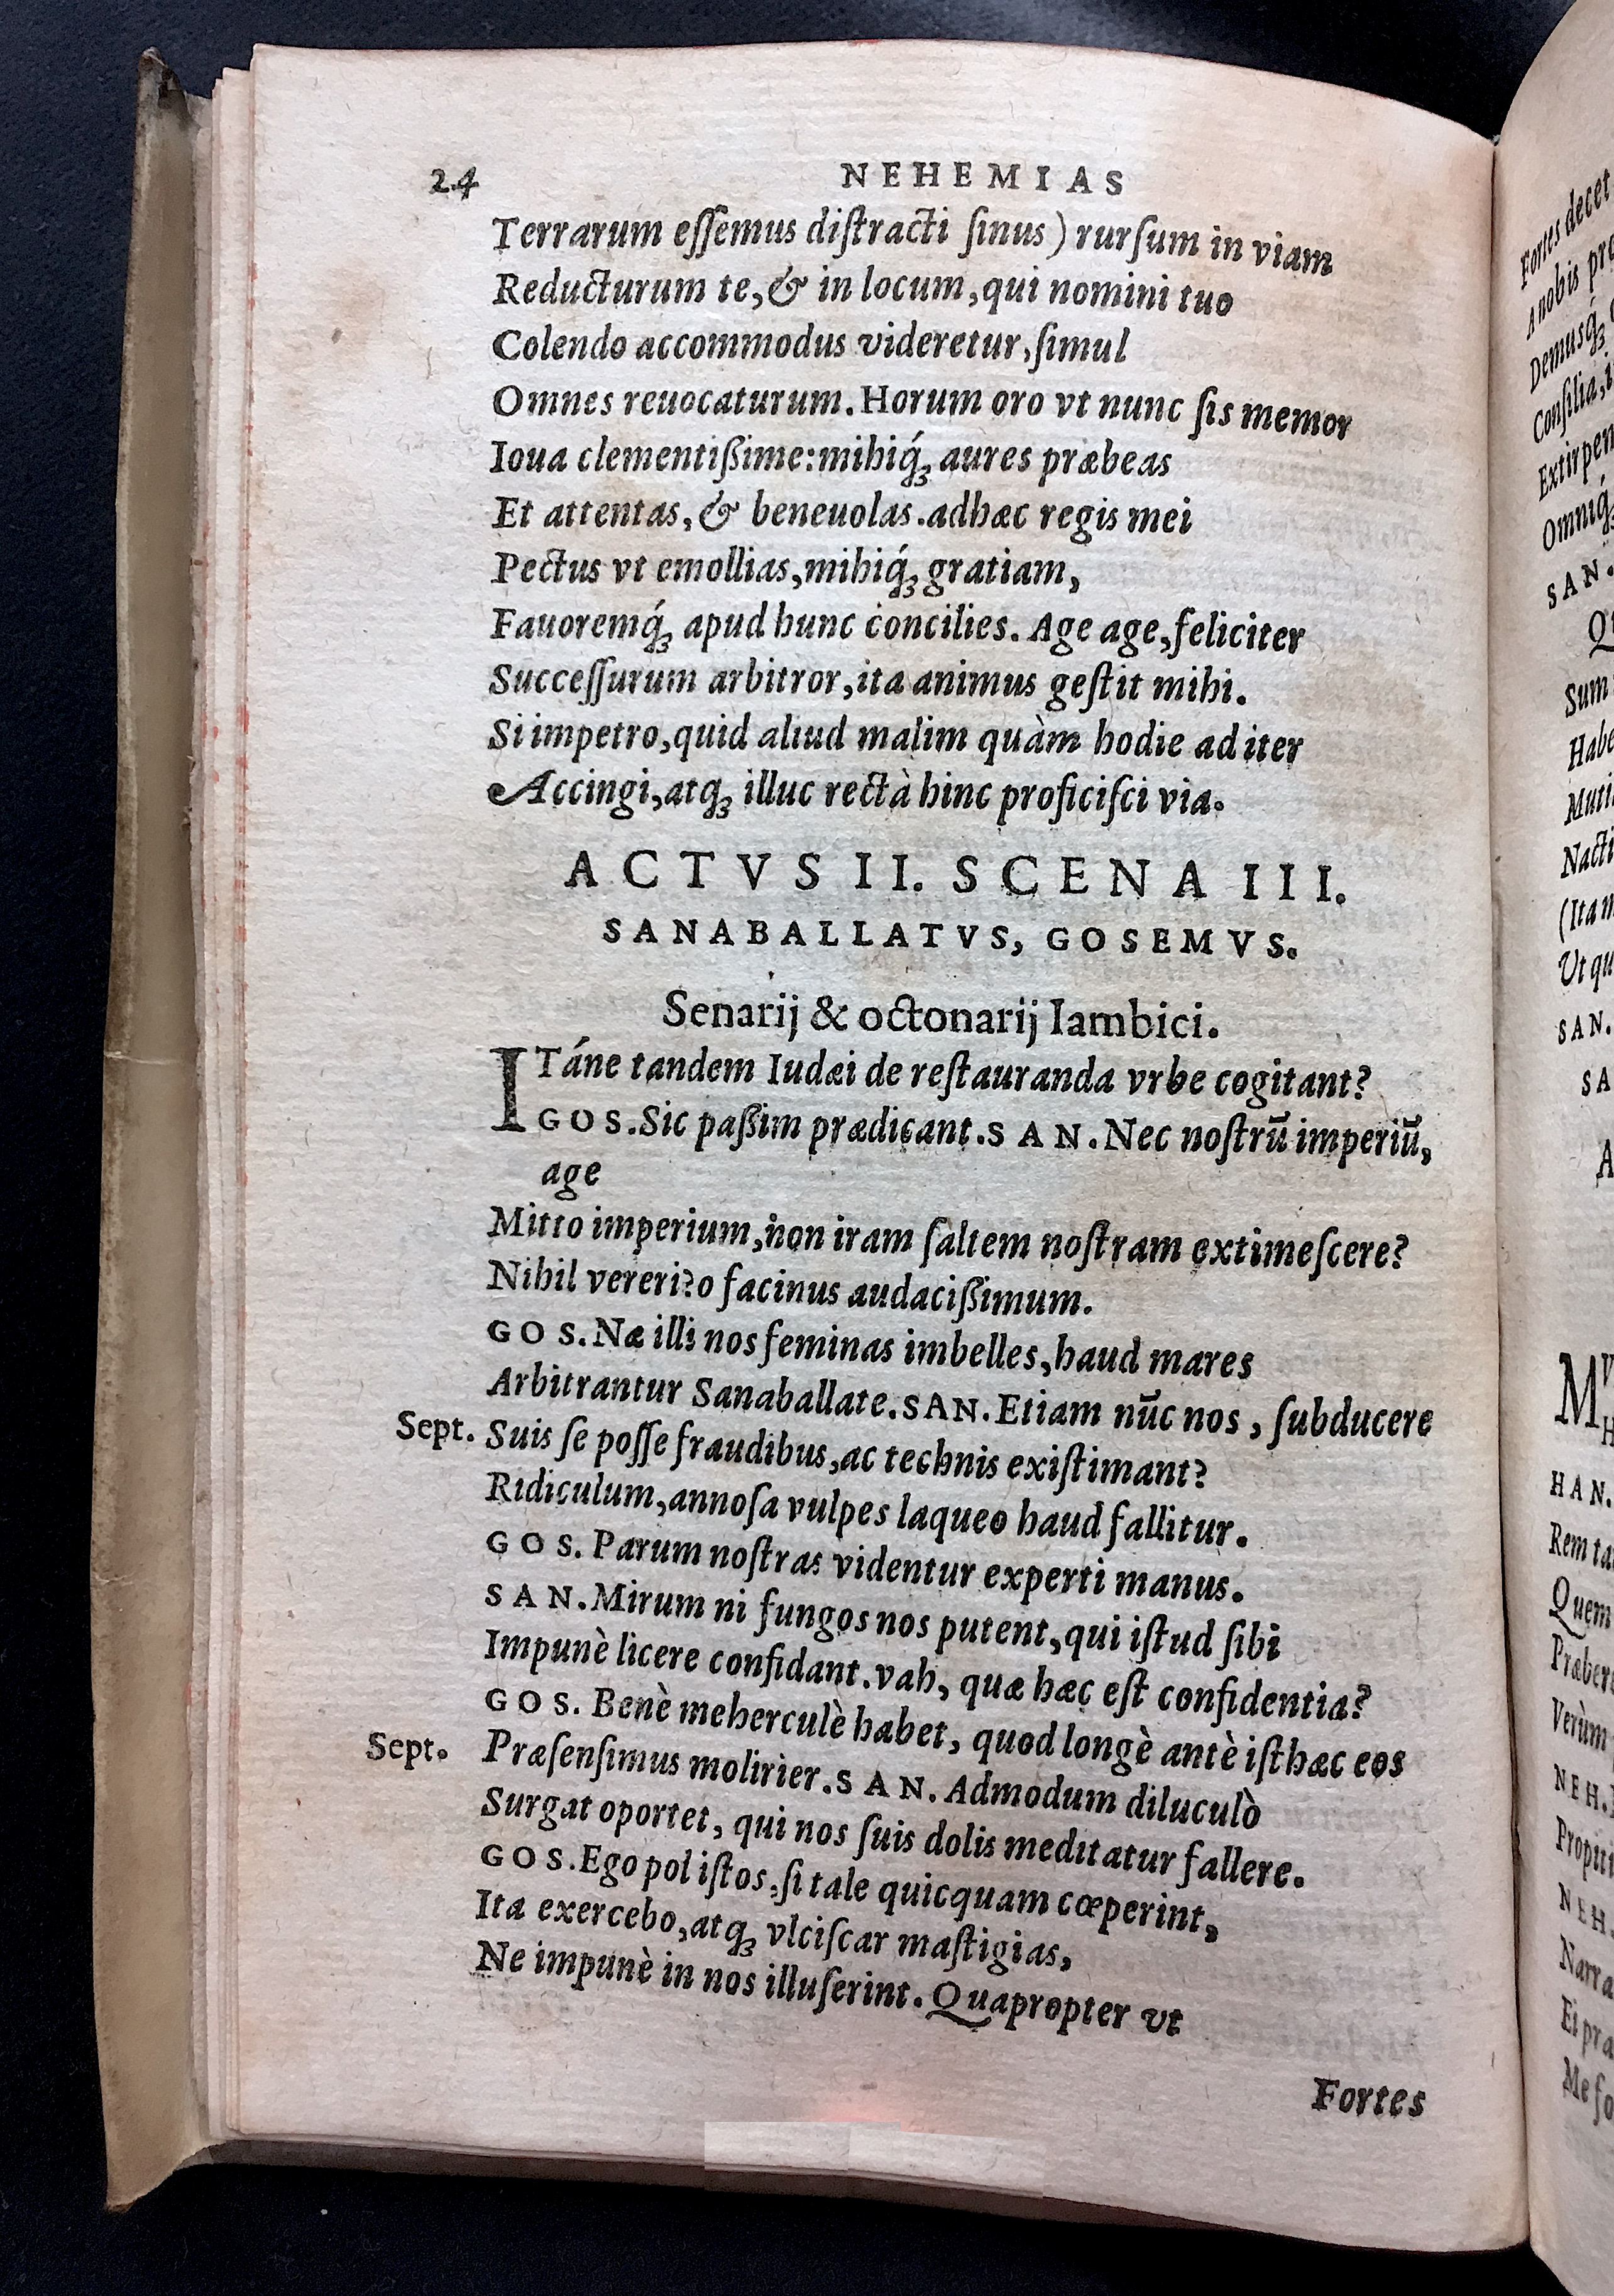 24 NEHEMIAS
Terrarum eſſemus diſtracti ſinus) rurſum in viam
Reducturum te, & in locum, qui nomini tuo
Colendo accommodus videretur, ſimul
Omnes reuocaturum. Horum oro vt nunc ſis memor
Ioua clementißime: mihiq́ꝫ aures præbeas
Et attentas, & beneuolas. adhæc regis mei
Pectus vt emollias, mihiq́ꝫ gratiam,
Fauoremq́ꝫ apud hunc concilies. Age age, feliciter
Succeſſurum arbitror, ita animus geſtit mihi.
Si impetro, quid aliud malim quàm hodie ad iter
Accingi, atqꝫ illuc rectà hinc proficiſci via.
ACTVS II. SCENA III.
SANABALLATVS, GOSEMVS.
Senarij & octonarij Iambici.
ITáne tandem Iudæi de reſtauranda vrbe cogitant?
GOS. Sic paßim prædicant. SAN. Nec noſtrū imperiū,
age
Mitto imperium, non iram ſaltem noſtram extimeſcere?
Nihil vereri? o facinus audacißimum.
GOS. Næ illi nos feminas imbelles, haud mares
Arbitrantur Sanaballate. SAN. Etiam nūc nos, ſubducere
Sept. Suis ſe poſſe fraudibus, ac technis exiſtimant?
Ridiculum, annoſa vulpes laqueo haud fallitur.
GOS. Parum noſtras videntur experti manus.
SAN. Mirum ni fungos nos putent, qui iſtud ſibi
Impunè licere confidant. vah, quæ hæc eſt confidentia?
GOS. Benè meherculè habet, quod longè antè iſthæc eos
Sept. Præſenſimus molirier. SAN. Admodum diluculò
Surgat oportet, qui nos ſuis dolis meditatur fallere.
GOS. Ego pol iſtos, ſi tale quicquam cœperint,
Ita exercebo, atqꝫ vlciſcar maſtigias,
Ne impunè in nos illuſerint. Quapropter vt
Fortes
Fortes decet
A nobis
Extirpen
SAN.
SAN.
HAN.
Quem
Verùm
NEH.
NEH.